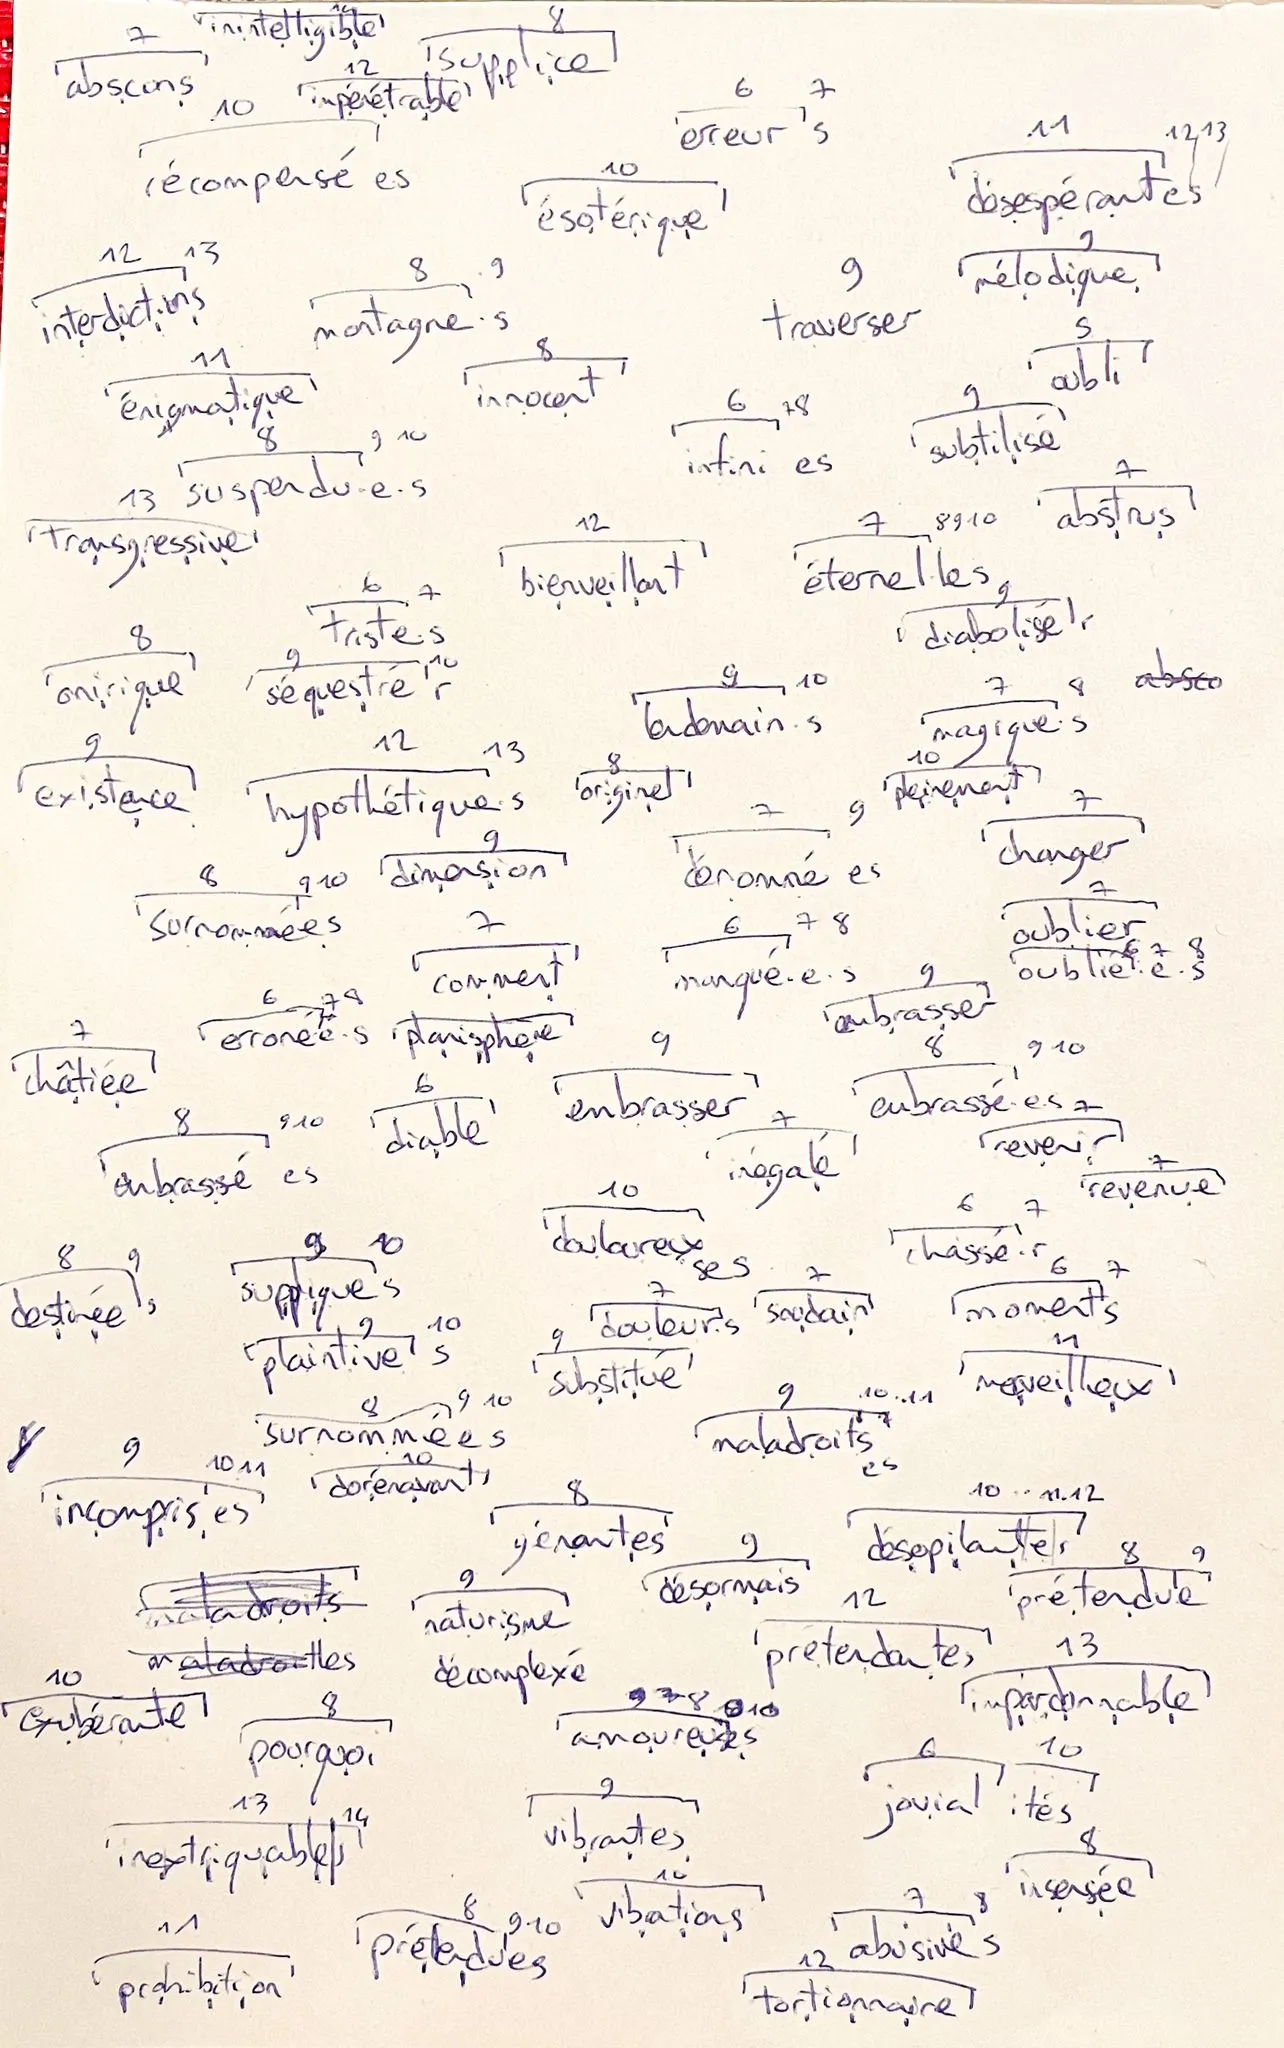 inintelligible
7 8
abscons supplice
12
impénétrable
10 6 7
récompensé es erreur's
10 11 12 13
ésotérique désespérantes
12 13 8 9 9 9
interdictions montagne.s traverser mélodique
11 8 5
énigmatique innocent oubli
8 9 10 6 7 8 9
suspendu.e.s infini es subtilisé
13 12 7 8 9 10 7
transgressive bienveillant éternel.les abstrus
6 7 9
triste.s diabolisé'r
8 9 10 9 10 7 8
onirique séquestré'r lendemain.s magique.s
9 12 13 8 10
existence hypothétique.s originel pleinement
8 9 10 9 7 9 7
surnommées dimension dénommé es changer
7 6 7 8 7
comment manqué.e.s oublier
6 7 8 9 6 7 8
erroné.e.s planisphère embrasser oublié.e.s
7 6 9 8 9 10
châtiée diable embrasser embrassé.es
8 9 10 7 7
embrassé es inégalé revenir
10 6 7 7
douloureux chassé.r revenue
ses
8 9 9 10 7 7 6 7
destinée's supplique's douleurs soudain moments
9 10 9 11
plaintive's substitué merveilleux
8 9 10 9 10..11
surnommées maladroits
es
9 10 11 10
incompris es dorénavant
8 9 10..11.12
gênantes désormais désopilante
9 8 9
naturisme prétendue
décomplexé
12 13
prétendantes impardonnable
10 8 7 8 9 10
exubérante pourquoi amoureuses
13 14 9 6 10
inextriquables vibrantes jovial ités
10 8
vibrations insensée
11 8 9 10 7 8
prohibition prétendues abusive s
12
tortionnaire